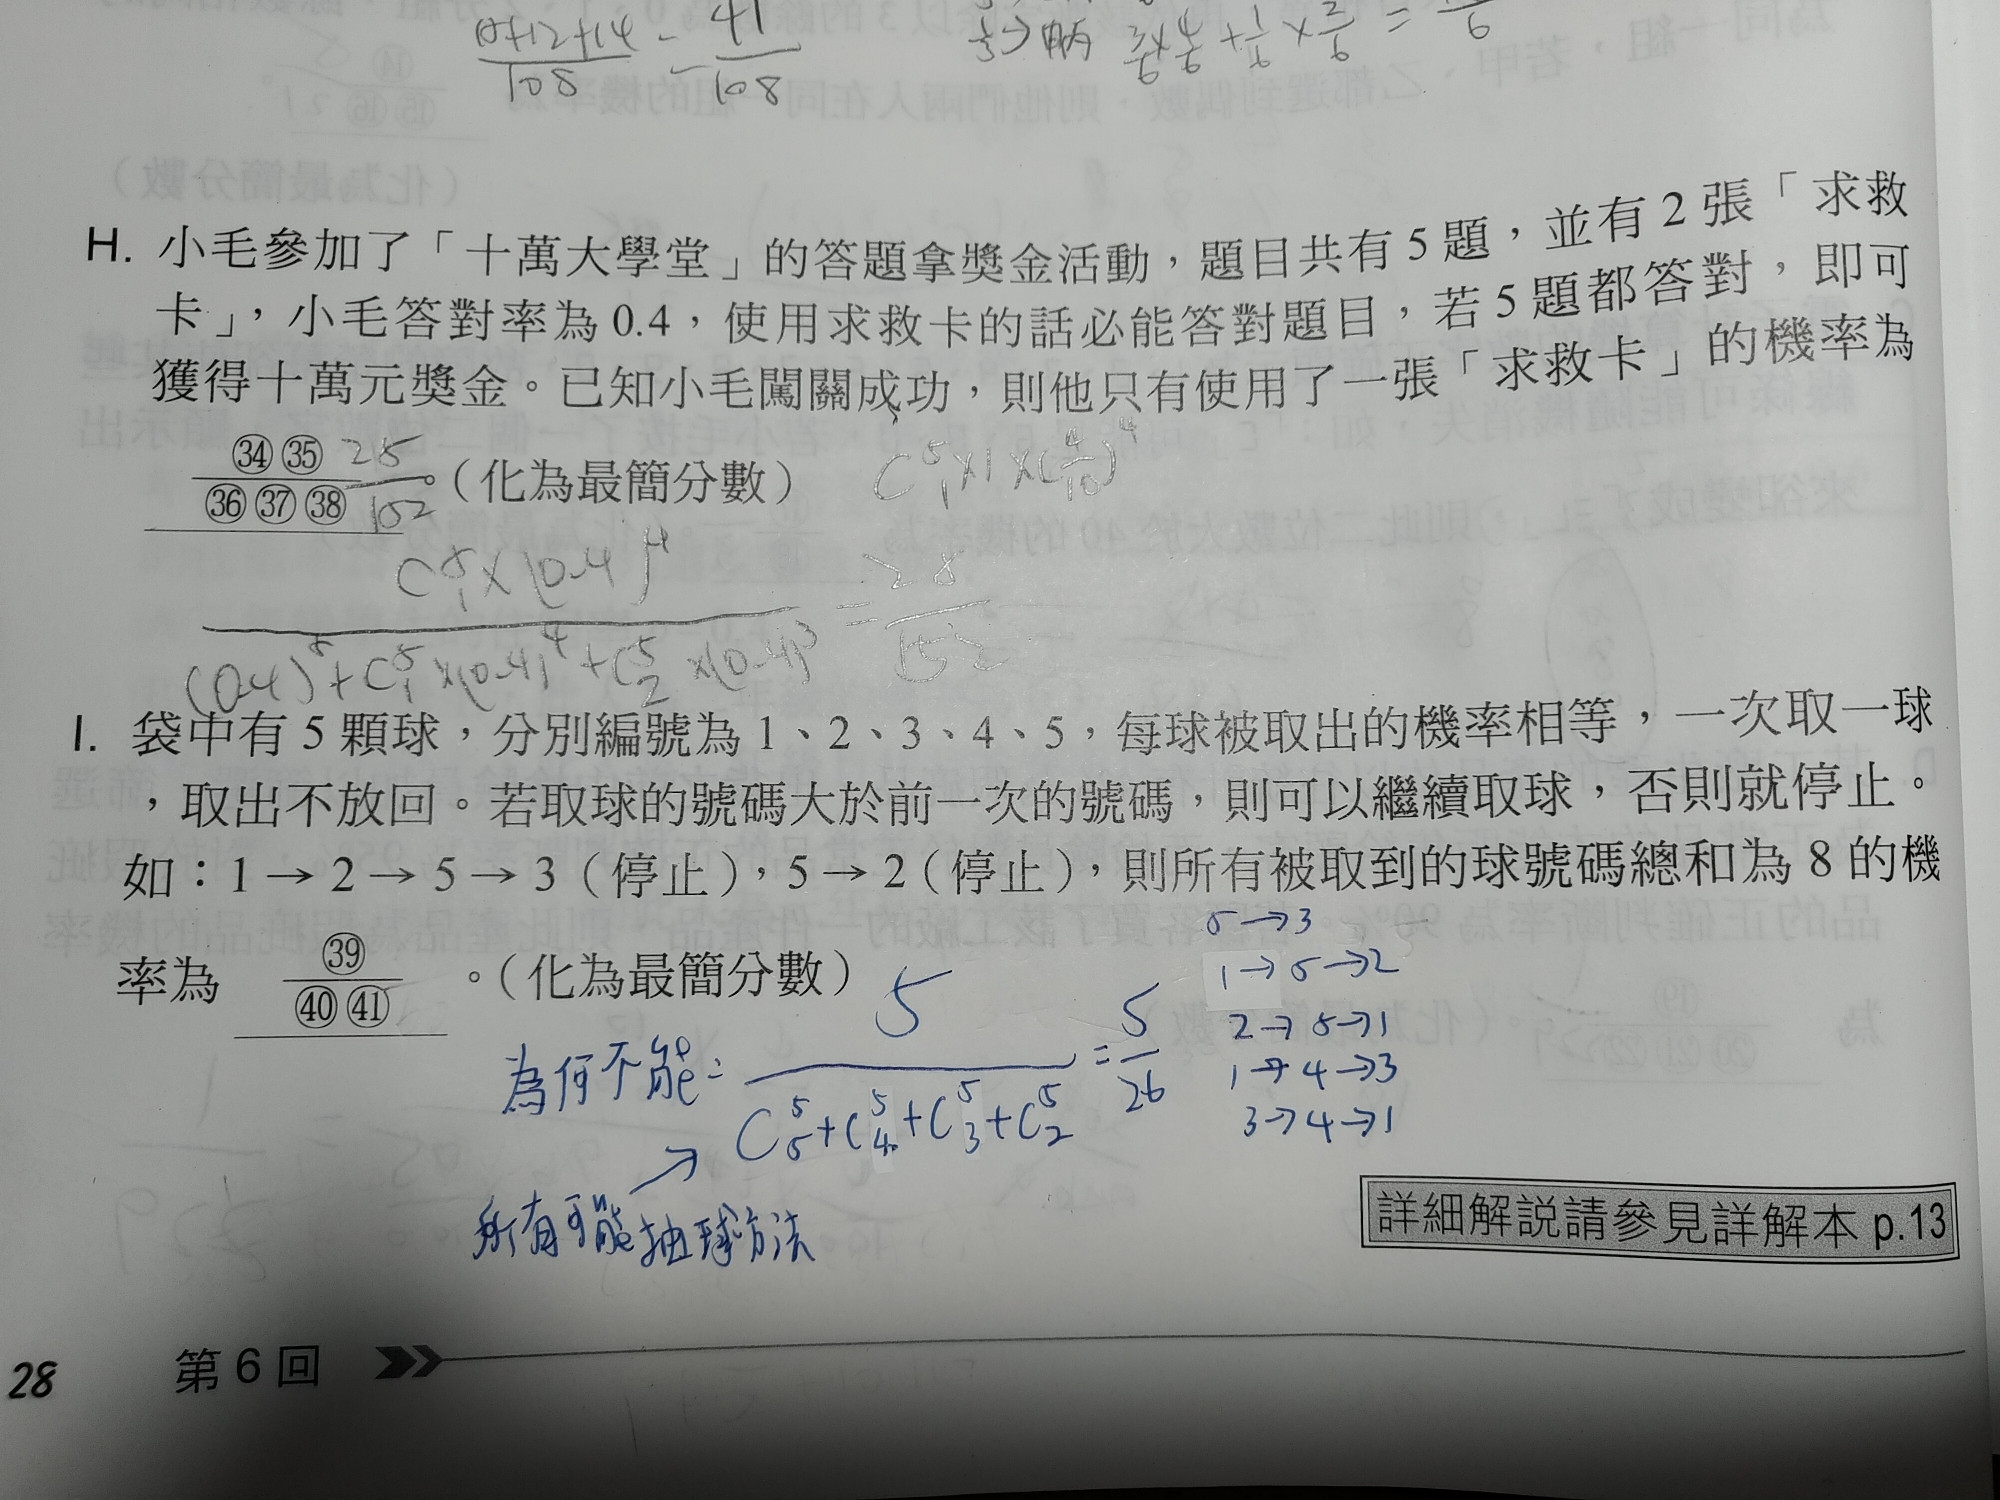 10+12+14 = 41
108 108
2/6 × 4/6 + 1/6 × 2/6 =
H. 小毛參加了「十萬大學堂」的答題拿獎金活動，題目共有5題，並有2張「求救
卡」，小毛答對率為0.4，使用求救卡的話必能答對題目，若5題都答對，即可
獲得十萬元獎金。已知小毛闖關成功，則他只有使用了一張「求救卡」的機率為
㉞㉟ 25
㊱㊲㊳ 152 。(化為最簡分數) C⁵₁×1×(4/10)⁴
C⁵₁×(0.4)⁴ = 25
(0.4)⁵+C⁵₁×(0.4)⁴+C⁵₂×(0.4)³ 152
I. 袋中有5顆球，分別編號為1、2、3、4、5，每球被取出的機率相等，一次取一球
，取出不放回。若取球的號碼大於前一次的號碼，則可以繼續取球，否則就停止。
如：1→2→5→3(停止)，5→2(停止)，則所有被取到的球號碼總和為8的機
率為 ㊴ 。(化為最簡分數)
㊵㊶
5→3
1→5→2
2→5→1
1→4→3
3→4→1
為何不能: 5 = 5
C⁵₅+C⁵₄+C⁵₃+C⁵₂ 26
所有可能抽球方法
詳細解說請參見詳解本 p.13
28 第6回